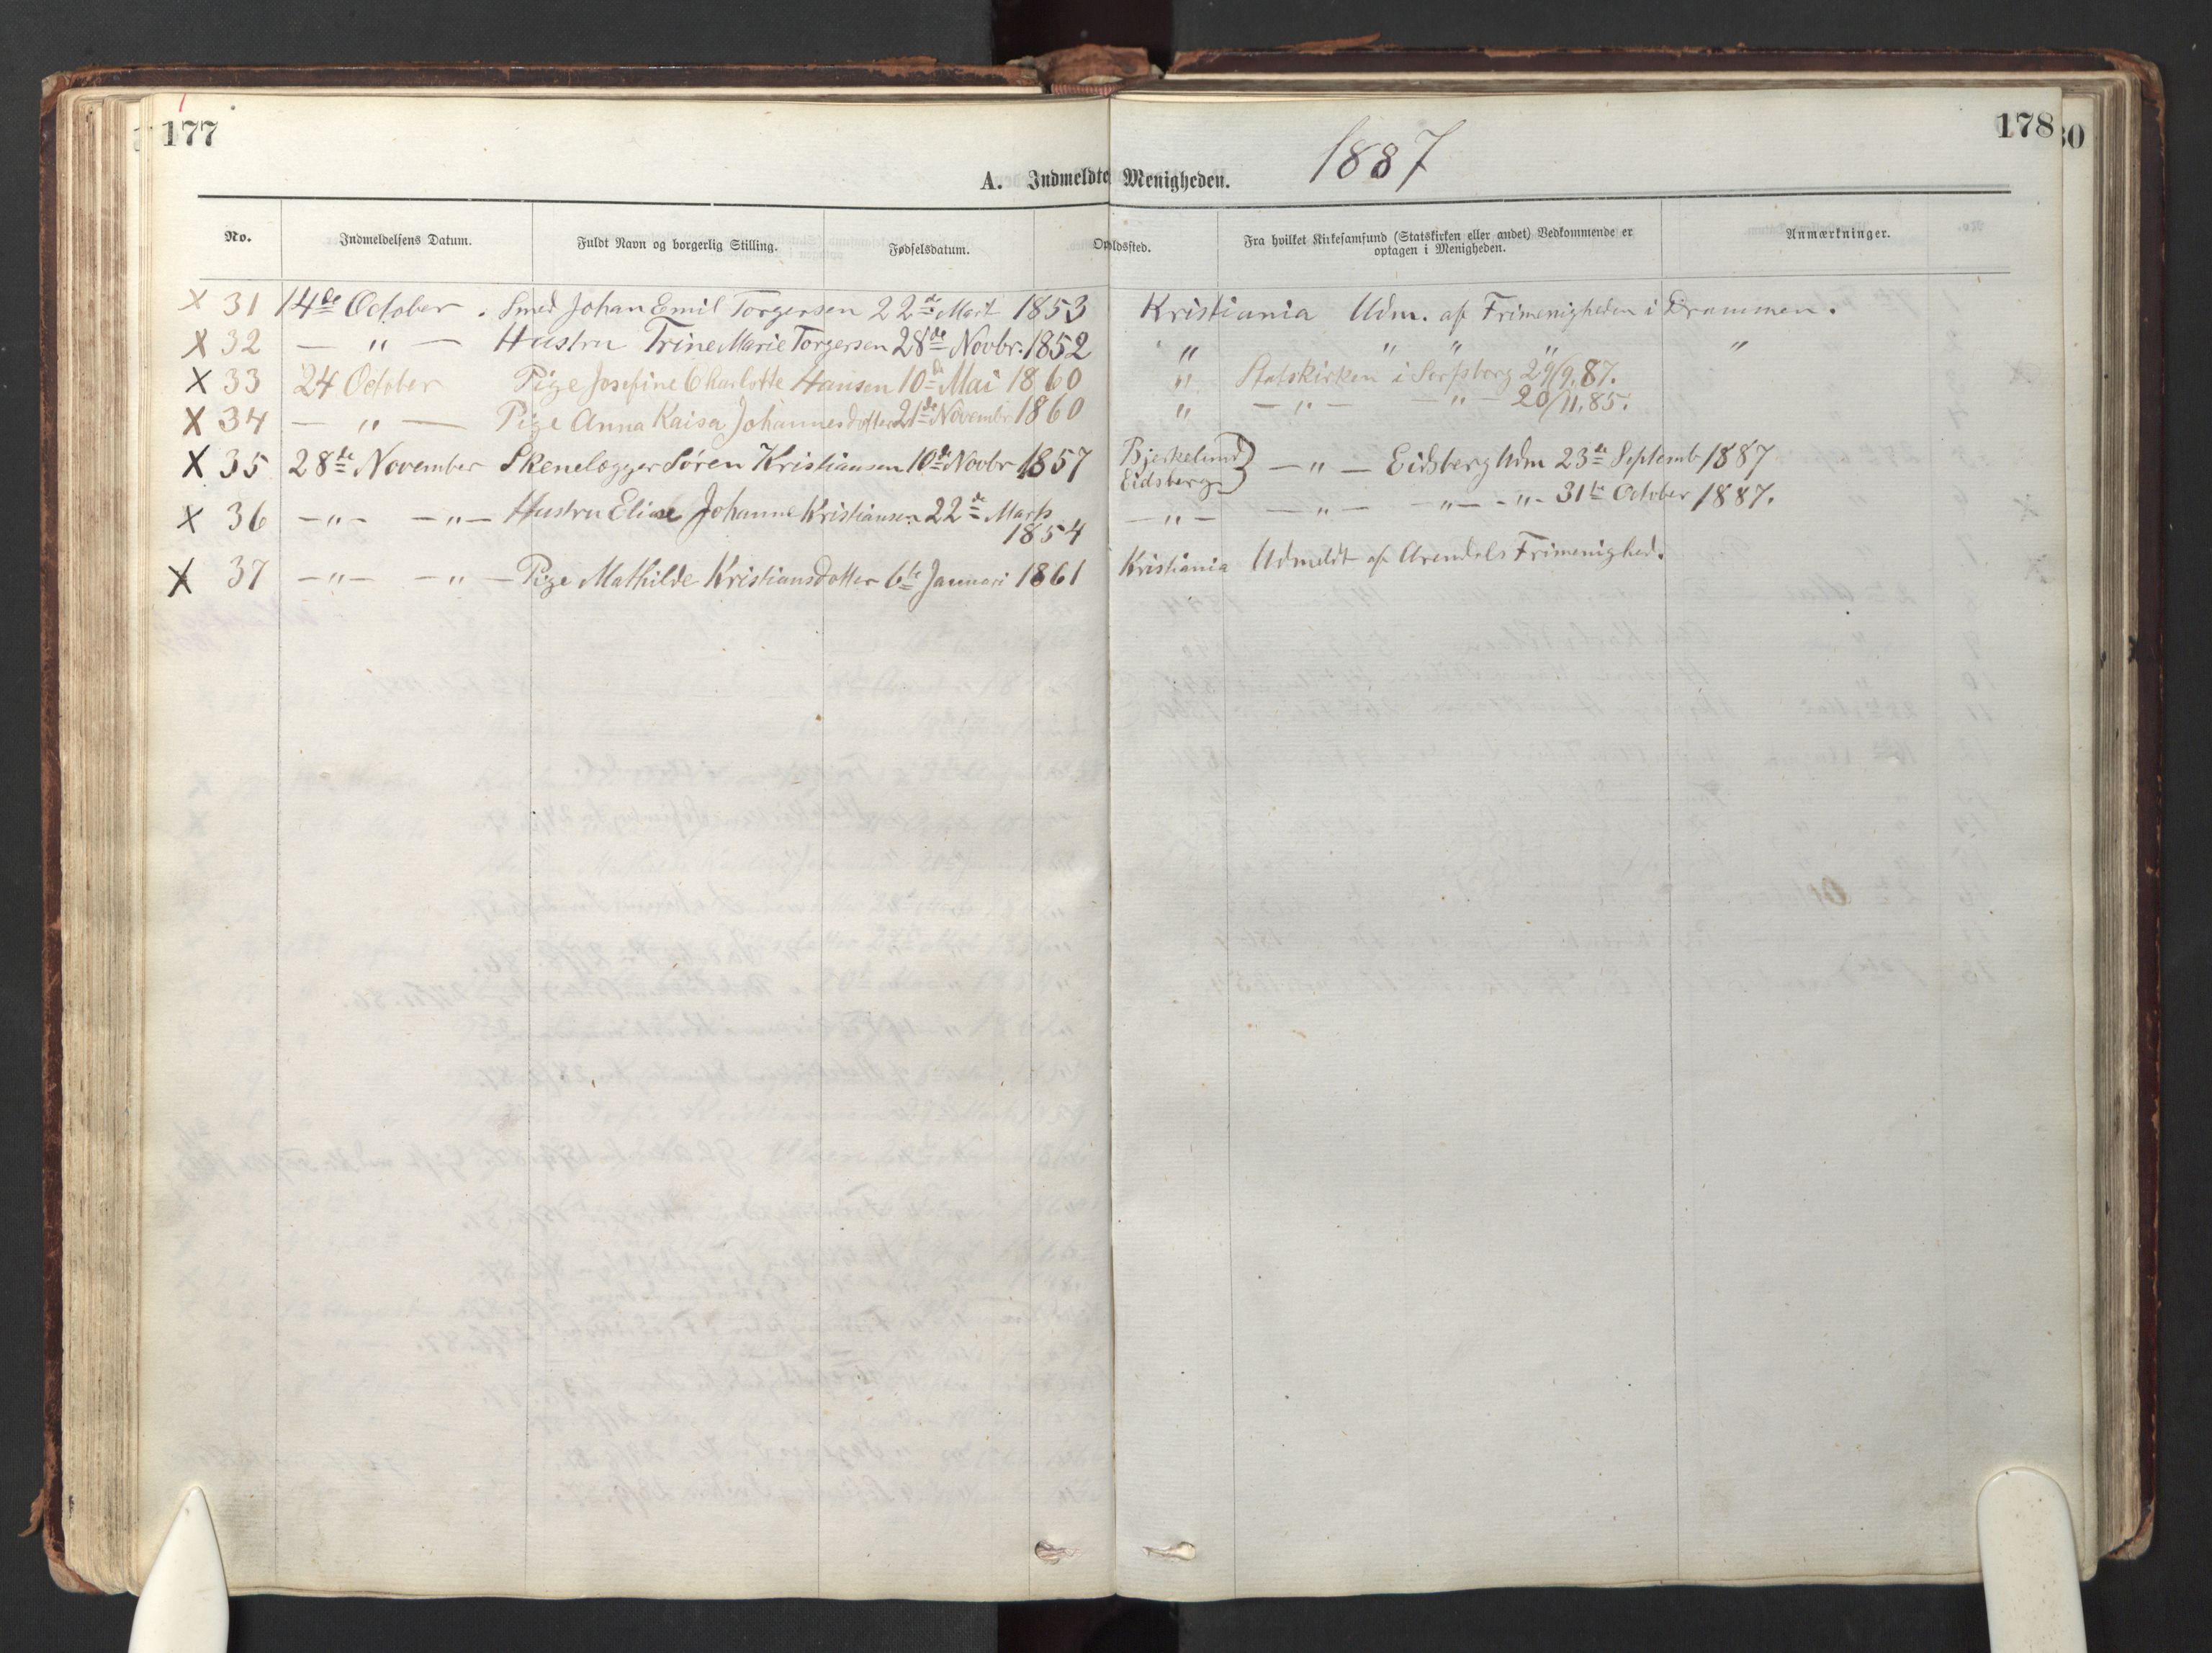 177
178
30
1887
A. Indmeldte Menigheden.
No. Indmeldelsens Datum. Fuldt Navn og borgerlig Stilling. Fødselsdatum. Opholdssted. Fra hvilket Kirkesamfund (Statskirken eller andet) Vedkommende er optagen i Menigheden. Anmærkninger.
X 31 14de October. Smed Johan Emil Torgersen 22de Mart 1853 Kristiania Udm. af Frimenigheden i Drammen.
X 32 — " — Hustru Trine Marie Torgersen 28de Novbr. 1852 " " " " "
X 33 24 October Pige Josefine Charlotte Hansen 10de Mai 1860 " Statskirken i Sarpsborg 29/9.87.
X 34 — " — Pige Anna Kaisa Johannesdotter 21de Novembr 1860 " — " — — " — 20/11.85.
X 35 28de November Skenelægger Søren Kristiansen 10de Novbr 1857 Bjerkelund Eidsberg } — " — Eidsberg Udm 23de Septemb 1887
X 36 — " — — " — Hustru Elise Johanne Kristiansen 22de Marts 1854 — " — — " — — " — - " - 31te October 1887.
X 37 — " — — " — Pige Mathilde Kristiansdotter 6te Januari 1861 Kristiania Udmeldt af Arendals Frimenighed.